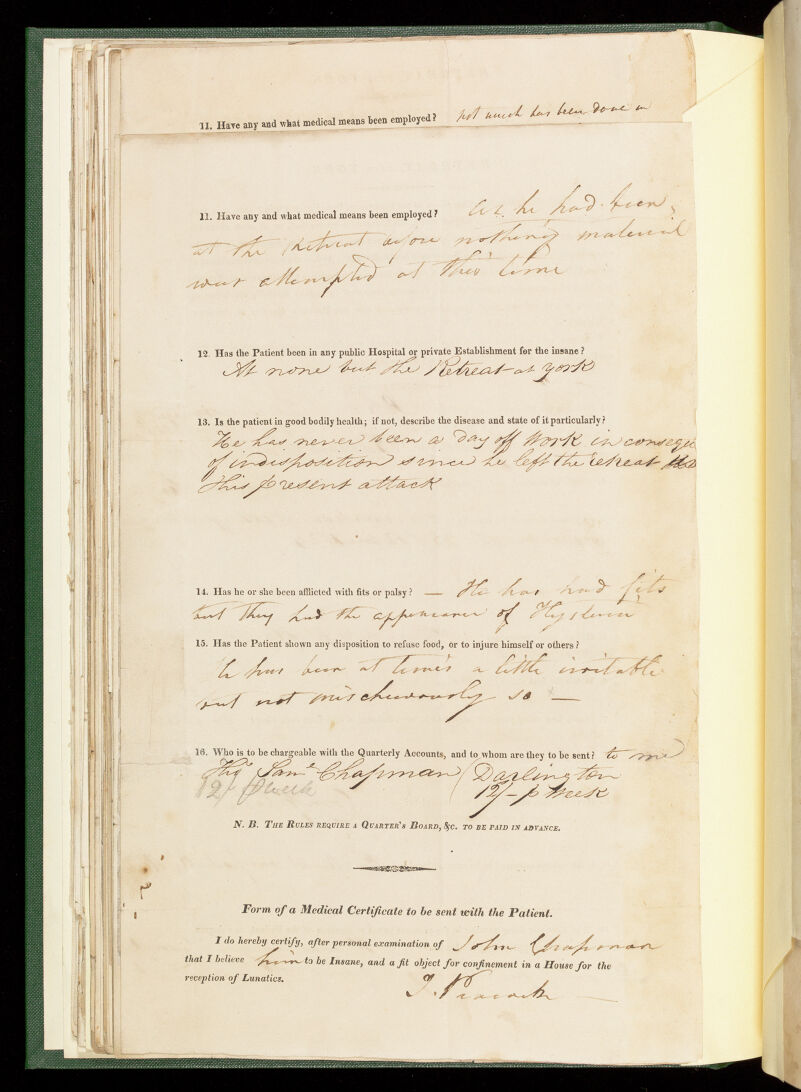 11. Have any and what medical means been employed? not much has been done in
11. Have any and what medical means been employed? As he had been
at the Retreat before nothing material
was attempted at this time
12. Has the Patient been in any public Hospital or private Establishment for the insane?
At none but the Retreat at york
13. Is the patient in good bodily health; if not, describe the disease and state of it particularly?
He has never been a day off Work in conseque
of indisposition since he left the retreat
this present attack
14. Has he or she been afflicted with fits or palsy? — He has had fits
but they had the appearance of Hysteria
15. Has the Patient shown any disposition to refuse food, or to injure himself or others?
he has been at times a little irritable
but not mischievously so —
16. Who is to be chargeable with the Quarterly Accounts, and to whom are they to be sent? to me
Saml Chapman Darlington
12/ p week 12/- p Week
N. B. The Rules require a Quarter's Board, &c. to be paid in advance.
Form of a Medical Certificate to be sent with the Patient.
I do hereby certify, after personal examination of John Chapman
that I believe him to be Insane, and a fit object for confinement in a House for the
reception of Lunatics.
J. Peacock —